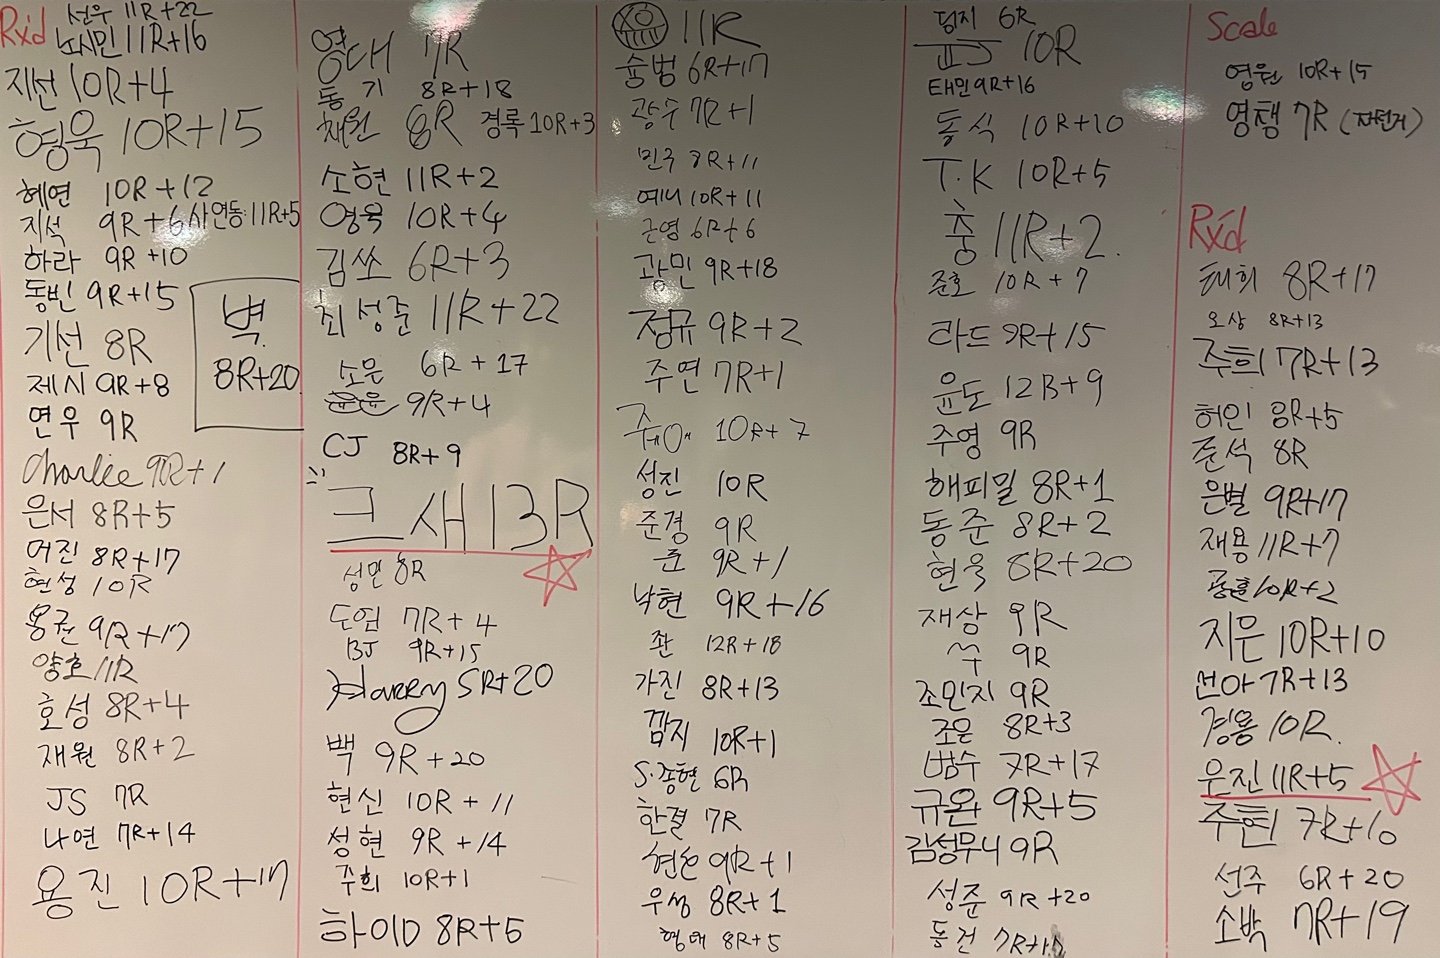 Rxd 선우 11R+22
노시민 11R+16
지선 10R+4
형욱 10R+15
혜연 10R+12
지석 9R+6 사연동:11R+5
하라 9R+10
동빈 9R+15
벽 8R+20
기선 8R
제시 9R+8
연우 9R
Charlie 9R+1
은서 8R+5
어진 8R+17
현성 10R
용권 9R+17
양호 11R
호성 8R+4
재원 8R+2
JS 7R
나연 7R+14
용진 10R+17
영대 7R
동기 8R+18
채원 8R 경록 10R+3
소현 11R+2
영욱 10R+4
김쏘 6R+3
최성준 11R+22
소은 6R+17
9R+4
CJ 8R+9
크_새 13R
성민 8R
도연 7R+4
BJ 9R+15
Harry 5R+20
백 9R+20
현신 10R+11
성현 9R+14
주희 10R+1
하이D 8R+5
11R
승범 6R+17
광수 7R+1
민구 8R+11
예니 10R+11
근영 6R+6
광민 9R+18
정규 9R+2
주연 7R+1
10R+7
성진 10R
준경 9R
준 9R+1
낙현 9R+16
좐 12R+18
가진 8R+13
깜지 10R+1
S.종현 6R
한결 7R
현손 9R+1
우성 8R+1
형태 8R+5
덩지 6R
10R
태민 9R+16
동식 10R+10
T.K 10R+5
충 11R+2
준호 10R+7
라드 9R+15
윤도 12R+9
주영 9R
해피밀 8R+1
동준 8R+2
현욱 8R+20
재상 9R
9R
조민지 9R
조은 8R+3
범수 7R+17
규완 9R+5
김성무니 9R
성준 9R+20
동건 7R+17
Scale
영원 10R+15
영챔 7R (자전거)
Rxd
태희 8R+17
오상 8R+13
주희 7R+13
허인 8R+5
준석 8R
은별 9R+17
재용 11R+7
공훈 10R+2
지은 10R+10
선아 7R+13
경용 10R
은진 11R+5
주현 7R+10
선주 6R+20
소박 7R+19